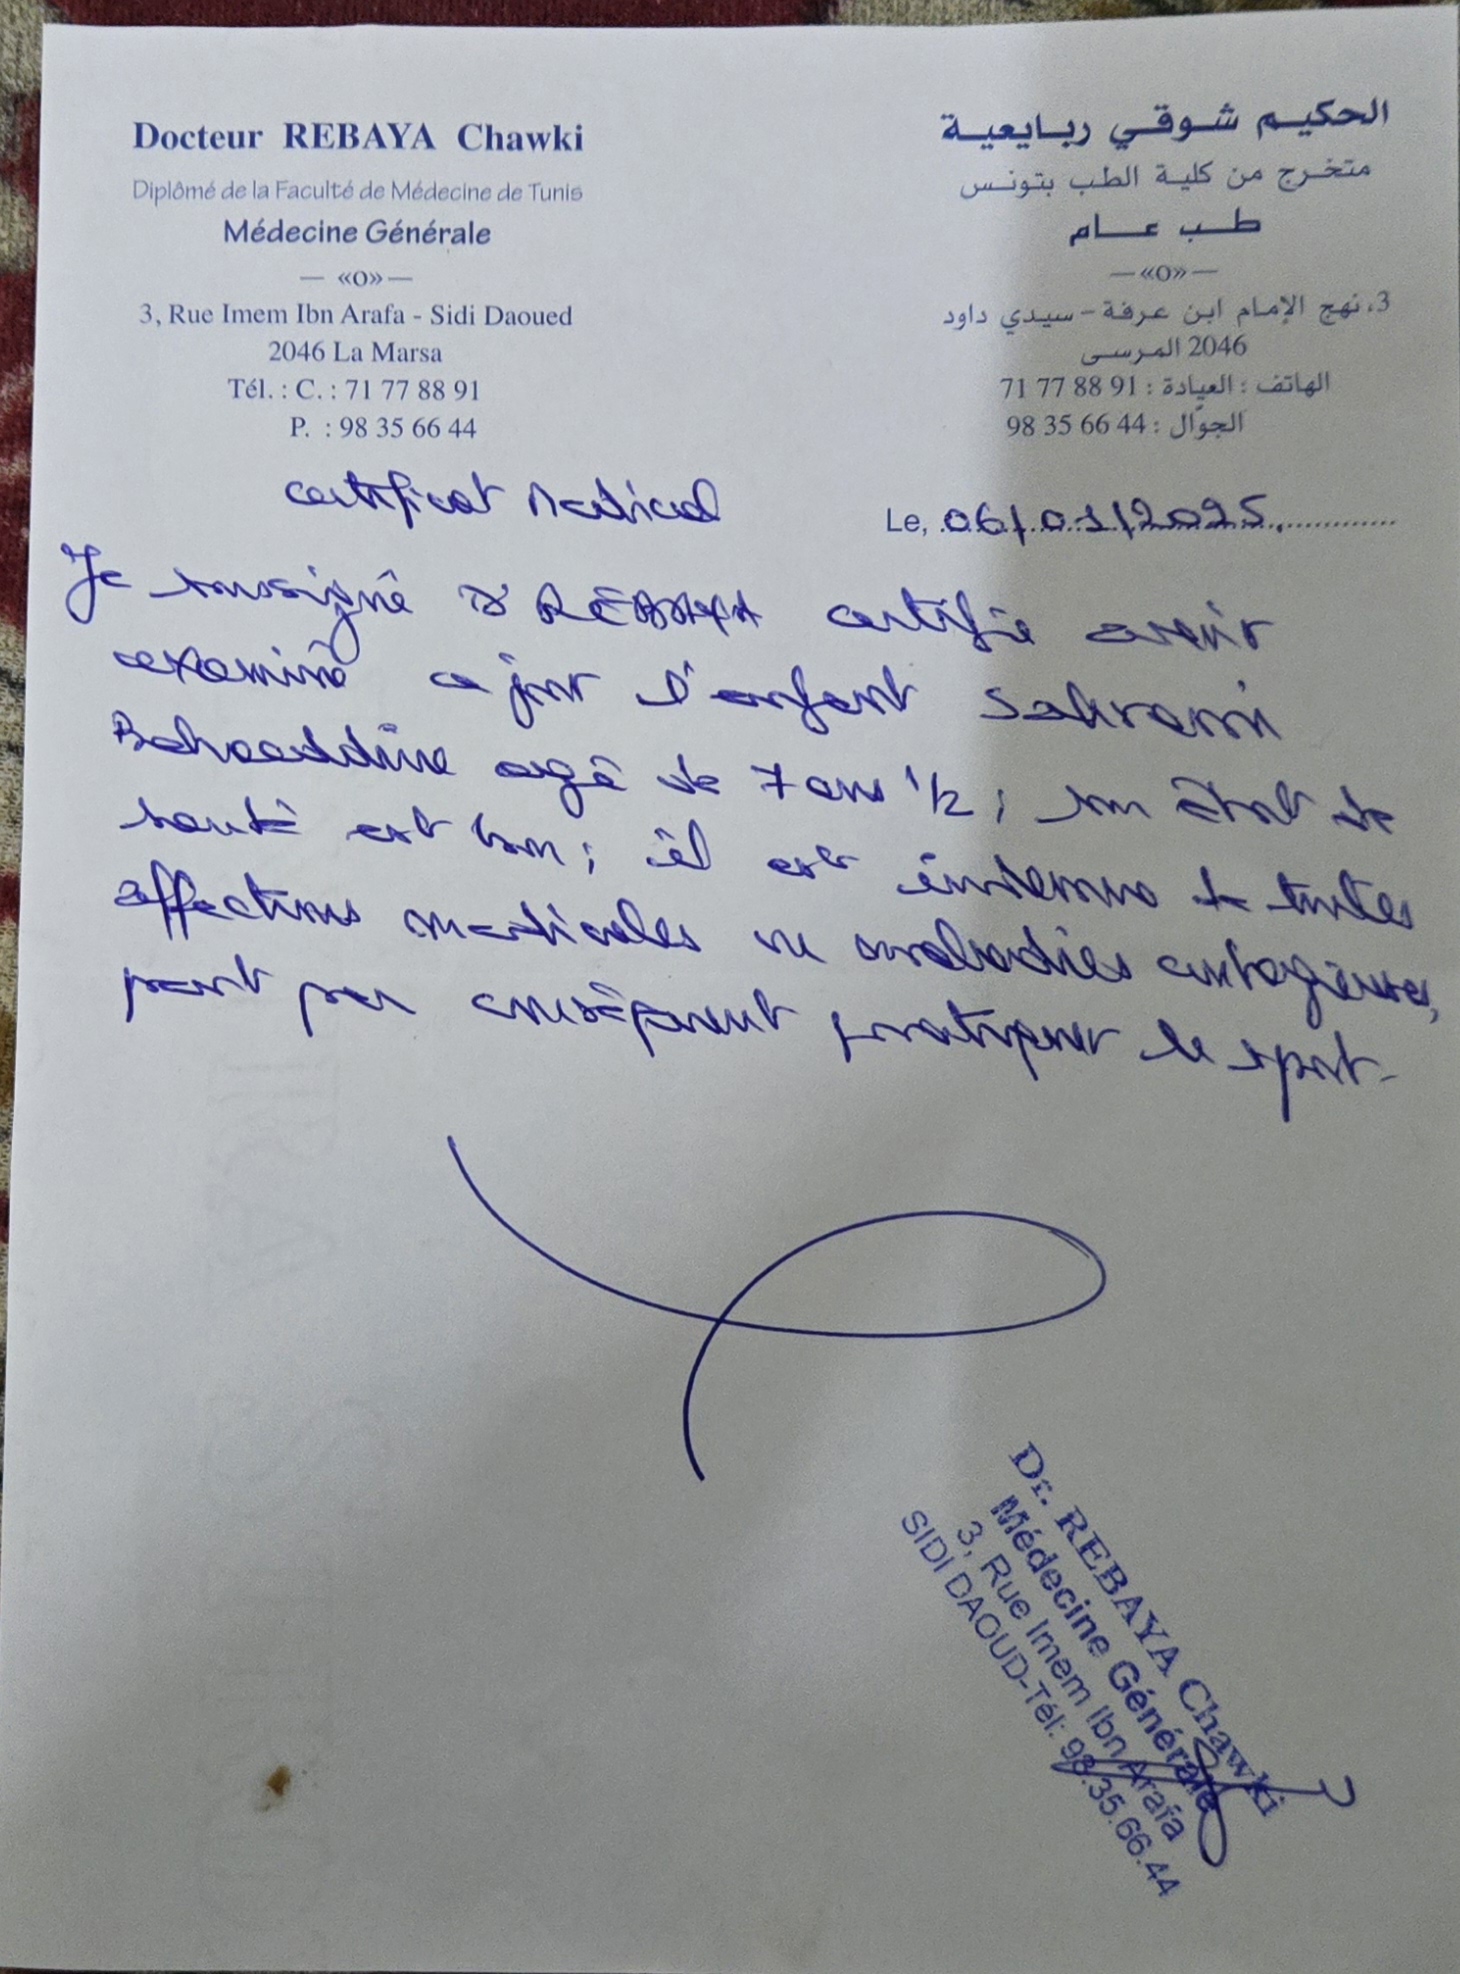 Docteur REBAYA Chawki
Diplômé de la Faculté de Médecine de Tunis
Médecine Générale
— «O» —
3, Rue Imem Ibn Arafa - Sidi Daoued
2046 La Marsa
Tél. : C. : 71 77 88 91
P. : 98 35 66 44
الحكيم شوقي ربايعية
متخرج من كلية الطب بتونس
طب عام
— «O» —
3، نهج الإمام ابن عرفة - سيدي داود
2046 المرسى
الهاتف : العيادة : 71 77 88 91
الجوّال : 98 35 66 44
certificat Medical
Le, 06/01/2025.
Je soussigné Dr REBAYA certifie avoir
examiné ce jour l'enfant Sahraoui
Bahaeddine agé de 7 ans 1/2 ; son état de
santé est bon ; il est indemne de toutes
affections medicales ou maladies contagieuses,
peut par conséquent pratiquer le sport.
Dr. REBAYA Chawki
Médecine Générale
3, Rue Imem Ibn Arafa
SIDI DAOUD-Tél: 98.35.66.44